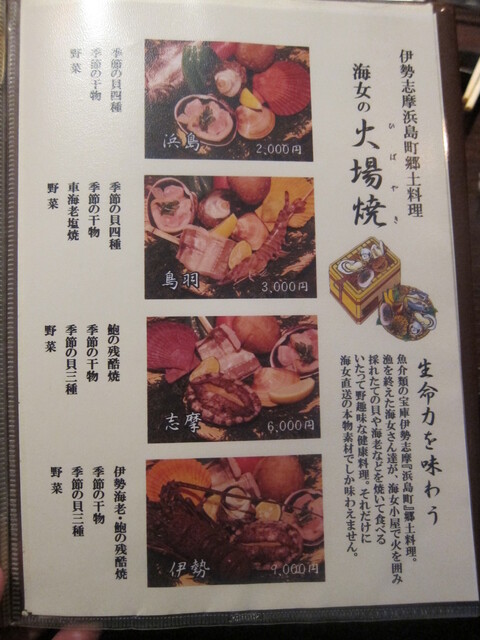 伊勢志摩浜島町郷土料理
海女の火場焼
ひばやき
生命力を味わう
魚介類の宝庫伊勢志摩『浜島町』郷土料理。
漁を終えた海女さん達が、海女小屋で火を囲み
採れたての貝や海老などを焼いて食べる
いたって野趣味な健康料理。それだけに
海女直送の本物素材でしか味わえません。
浜島
2,000円
季節の貝四種
季節の干物
野菜
鳥羽
3,000円
季節の貝四種
季節の干物
車海老塩焼
野菜
志摩
6,000円
鮑の残酷焼
季節の干物
季節の貝三種
野菜
伊勢
9,000円
伊勢海老・鮑の残酷焼
季節の干物
季節の貝三種
野菜